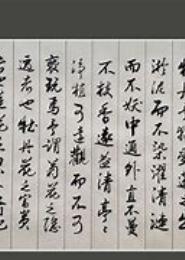 淤泥而不染濯清漣
而不妖中通外直不蔓
不枝香遠益清亭々
淨植可遠觀而不可
褻玩焉予謂菊花之隱
逸者也牡丹花之富貴